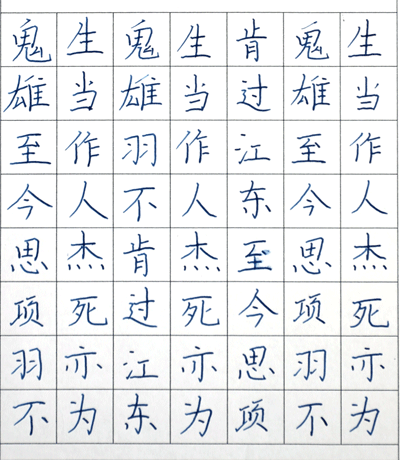 生当作人杰死亦为
鬼雄至今思项羽不
肯过江东至今思项
生当作人杰死亦为
鬼雄羽不肯过江东
生当作人杰死亦为
鬼雄至今思项羽不